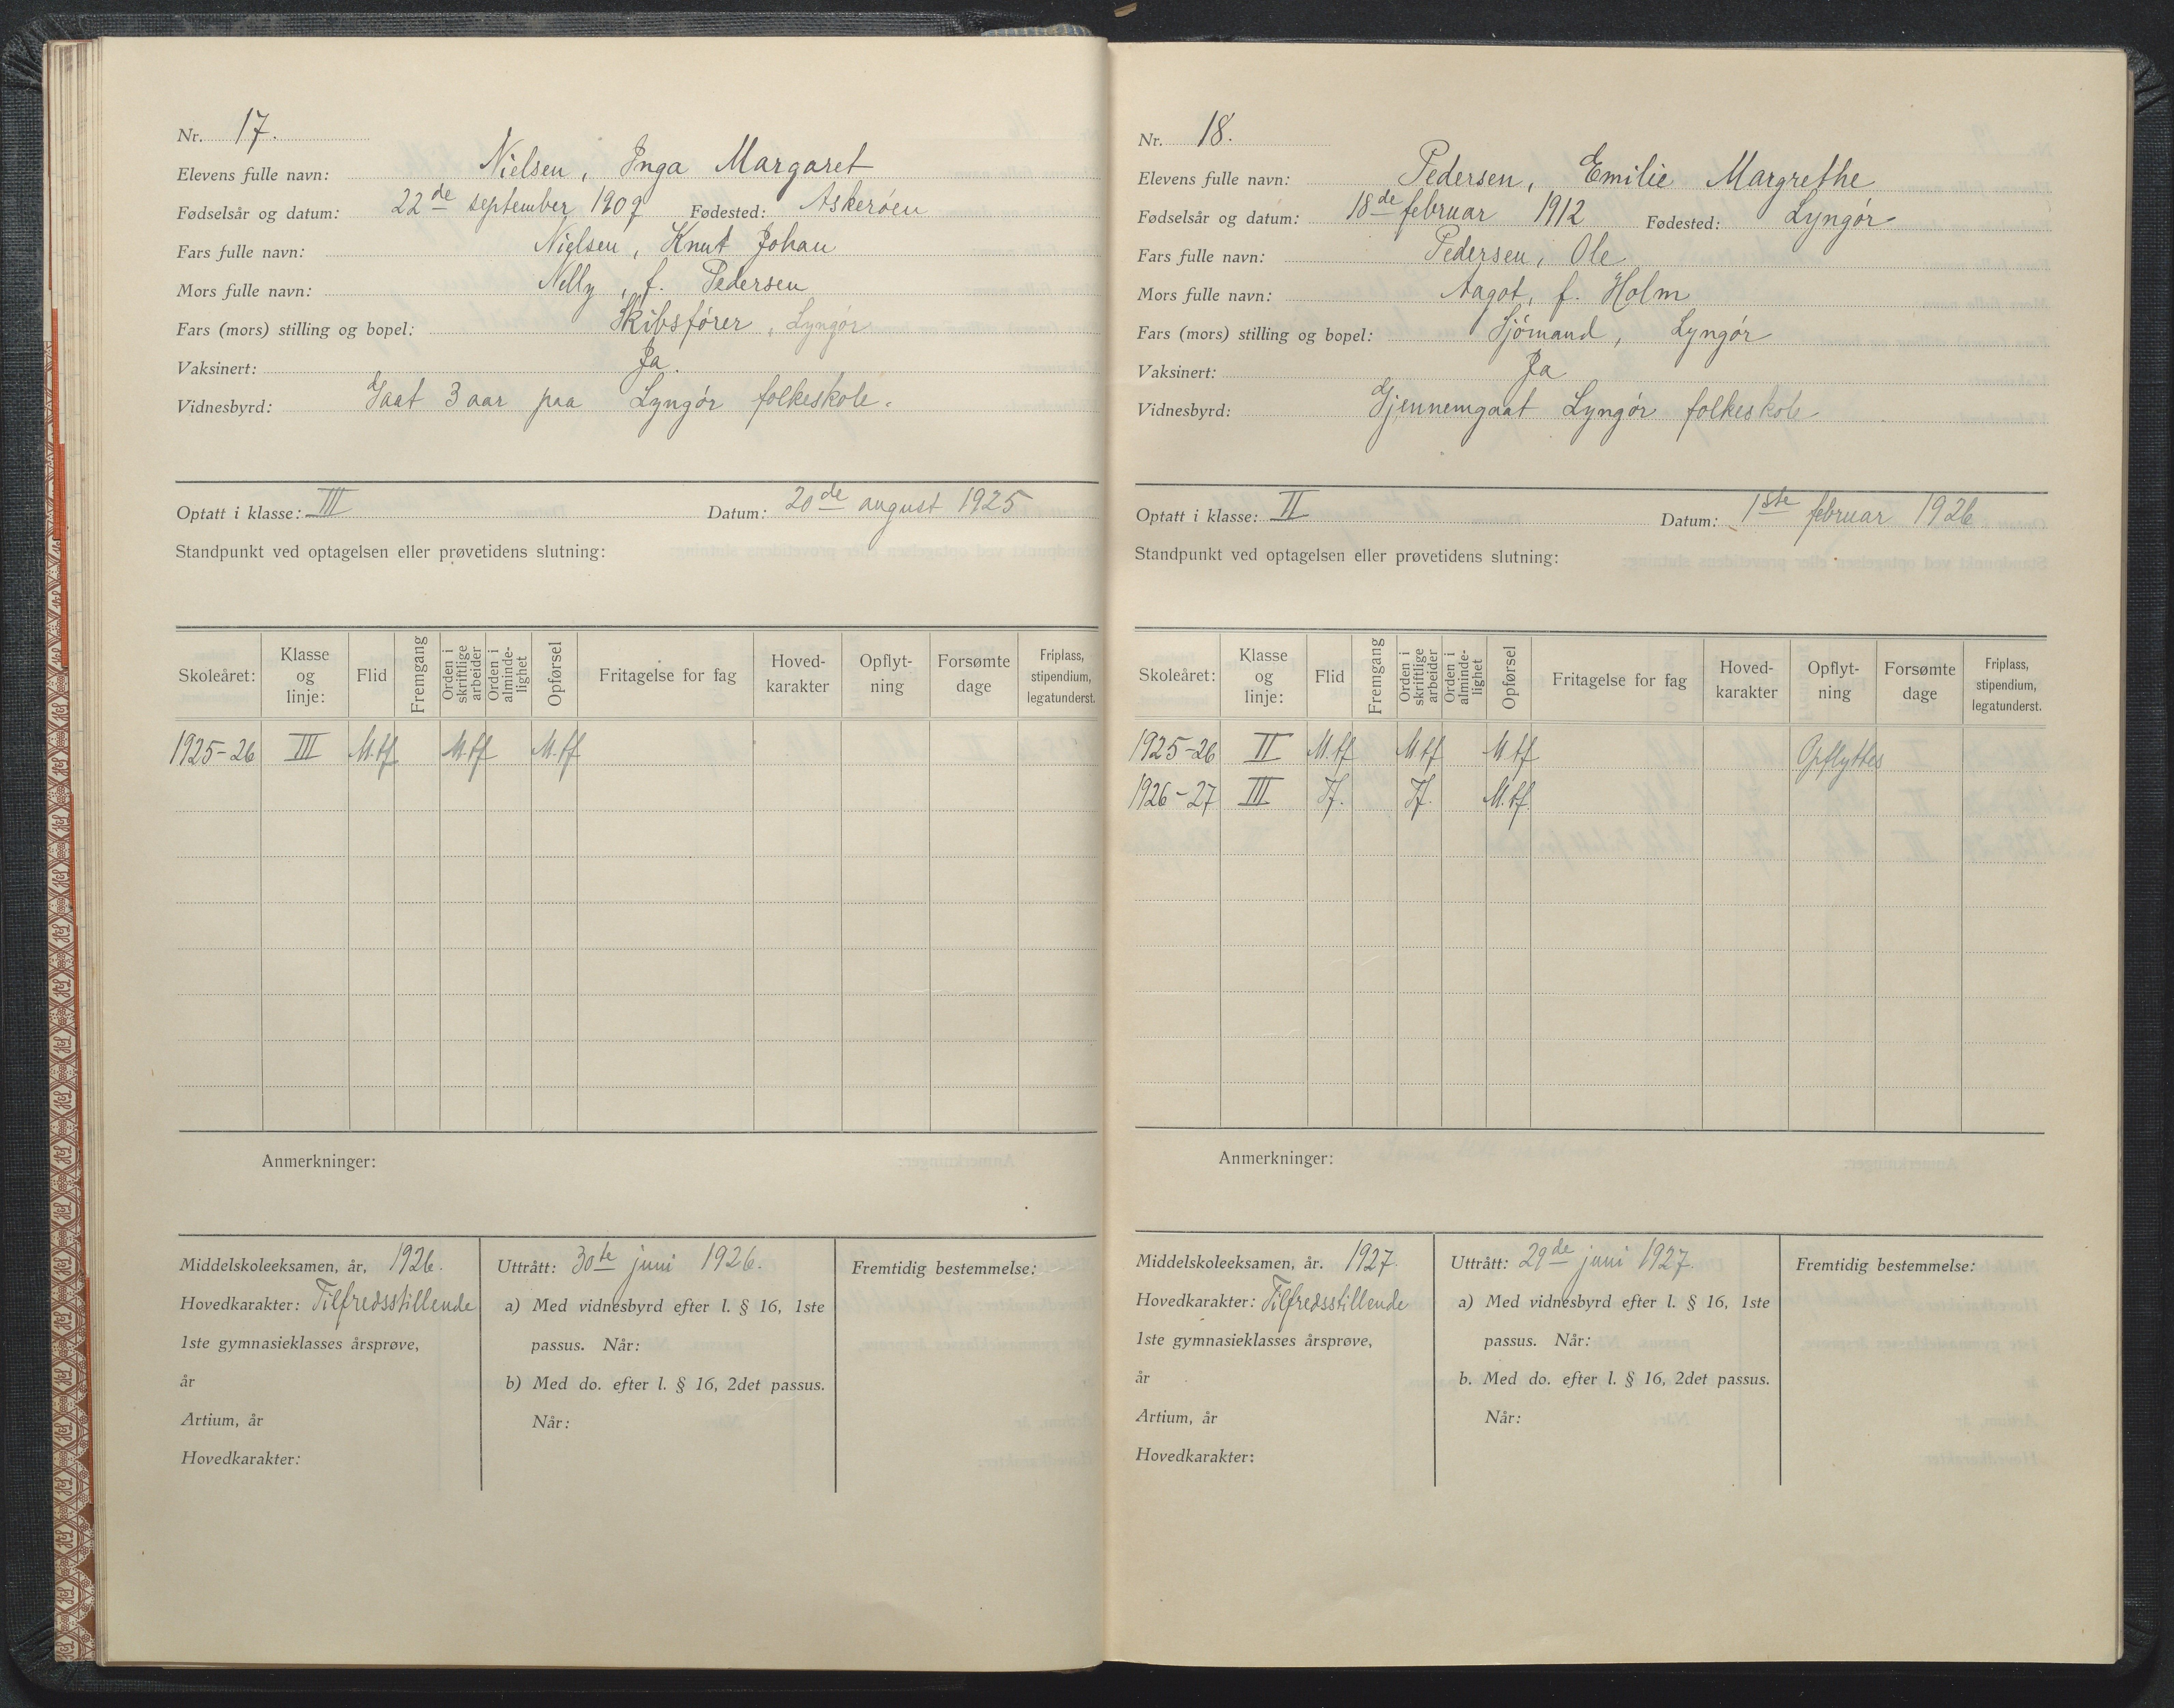 Nr. 17.
Elevens fulle navn: Nielsen, Inga Margaret
Fødselsår og datum: 22de september 1909 Fødested: Askerøen
Fars fulle navn: Nielsen, Knut Johan
Mors fulle navn: Nelly, f. Pedersen
Fars (mors) stilling og bopel: Skibsfører, Lyngør
Vaksinert: Ja.
Vidnesbyrd: Gaat 3 aar paa Lyngør folkeskole.
Optatt i klasse: III Datum: 20de august 1925
Standpunkt ved optagelsen eller prøvetidens slutning:
Skoleåret: Klasse og linje: Flid Fremgang Orden i skriftlige arbeider Orden i alminde-lighet Opførsel Fritagelse for fag Hoved-karakter Opflyt-ning Forsømte dage Friplass, stipendium, legatunderst.
1925-26 III M.tf M.tf M.tf
Anmerkninger:
Middelskoleeksamen, år, 1926.
Hovedkarakter: Tilfredsstillende
1ste gymnasieklasses årsprøve,
år
Artium, år
Hovedkarakter:
Uttrått: 30te juni 1926.
a) Med vidnesbyrd efter l. § 16, 1ste
passus. Når:
b) Med do. efter l. § 16, 2det passus.
Når:
Fremtidig bestemmelse:
Nr. 18.
Elevens fulle navn: Pedersen, Emilie Margrethe
Fødselsår og datum: 18de februar 1912 Fødested: Lyngør
Fars fulle navn: Pedersen, Ole
Mors fulle navn: Aagot, f. Holm
Fars (mors) stilling og bopel: Sjømand, Lyngør
Vaksinert: Ja
Vidnesbyrd: Gjennemgaat Lyngør folkeskole
Optatt i klasse: II Datum: 1ste februar 1926
Standpunkt ved optagelsen eller prøvetidens slutning:
Skoleåret: Klasse og linje: Flid Fremgang Orden i skriftlige arbeider Orden i alminde-lighet Opførsel Fritagelse for fag Hoved-karakter Opflyt-ning Forsømte dage Friplass, stipendium, legatunderst.
1925-26 II M.tf M tf M tf Opflyttes
1926-27 III Tf. Tf. M.tf.
Anmerkninger:
Middelskoleeksamen, år. 1927.
Hovedkarakter: Tilfredsstillende
1ste gymnasieklasses årsprøve,
år
Artium, år
Hovedkarakter:
Uttrått: 29de juni 1927.
a) Med vidnesbyrd efter l. § 16, 1ste
passus. Når:
b. Med do. efter l. § 16, 2det passus.
Når:
Fremtidig bestemmelse: